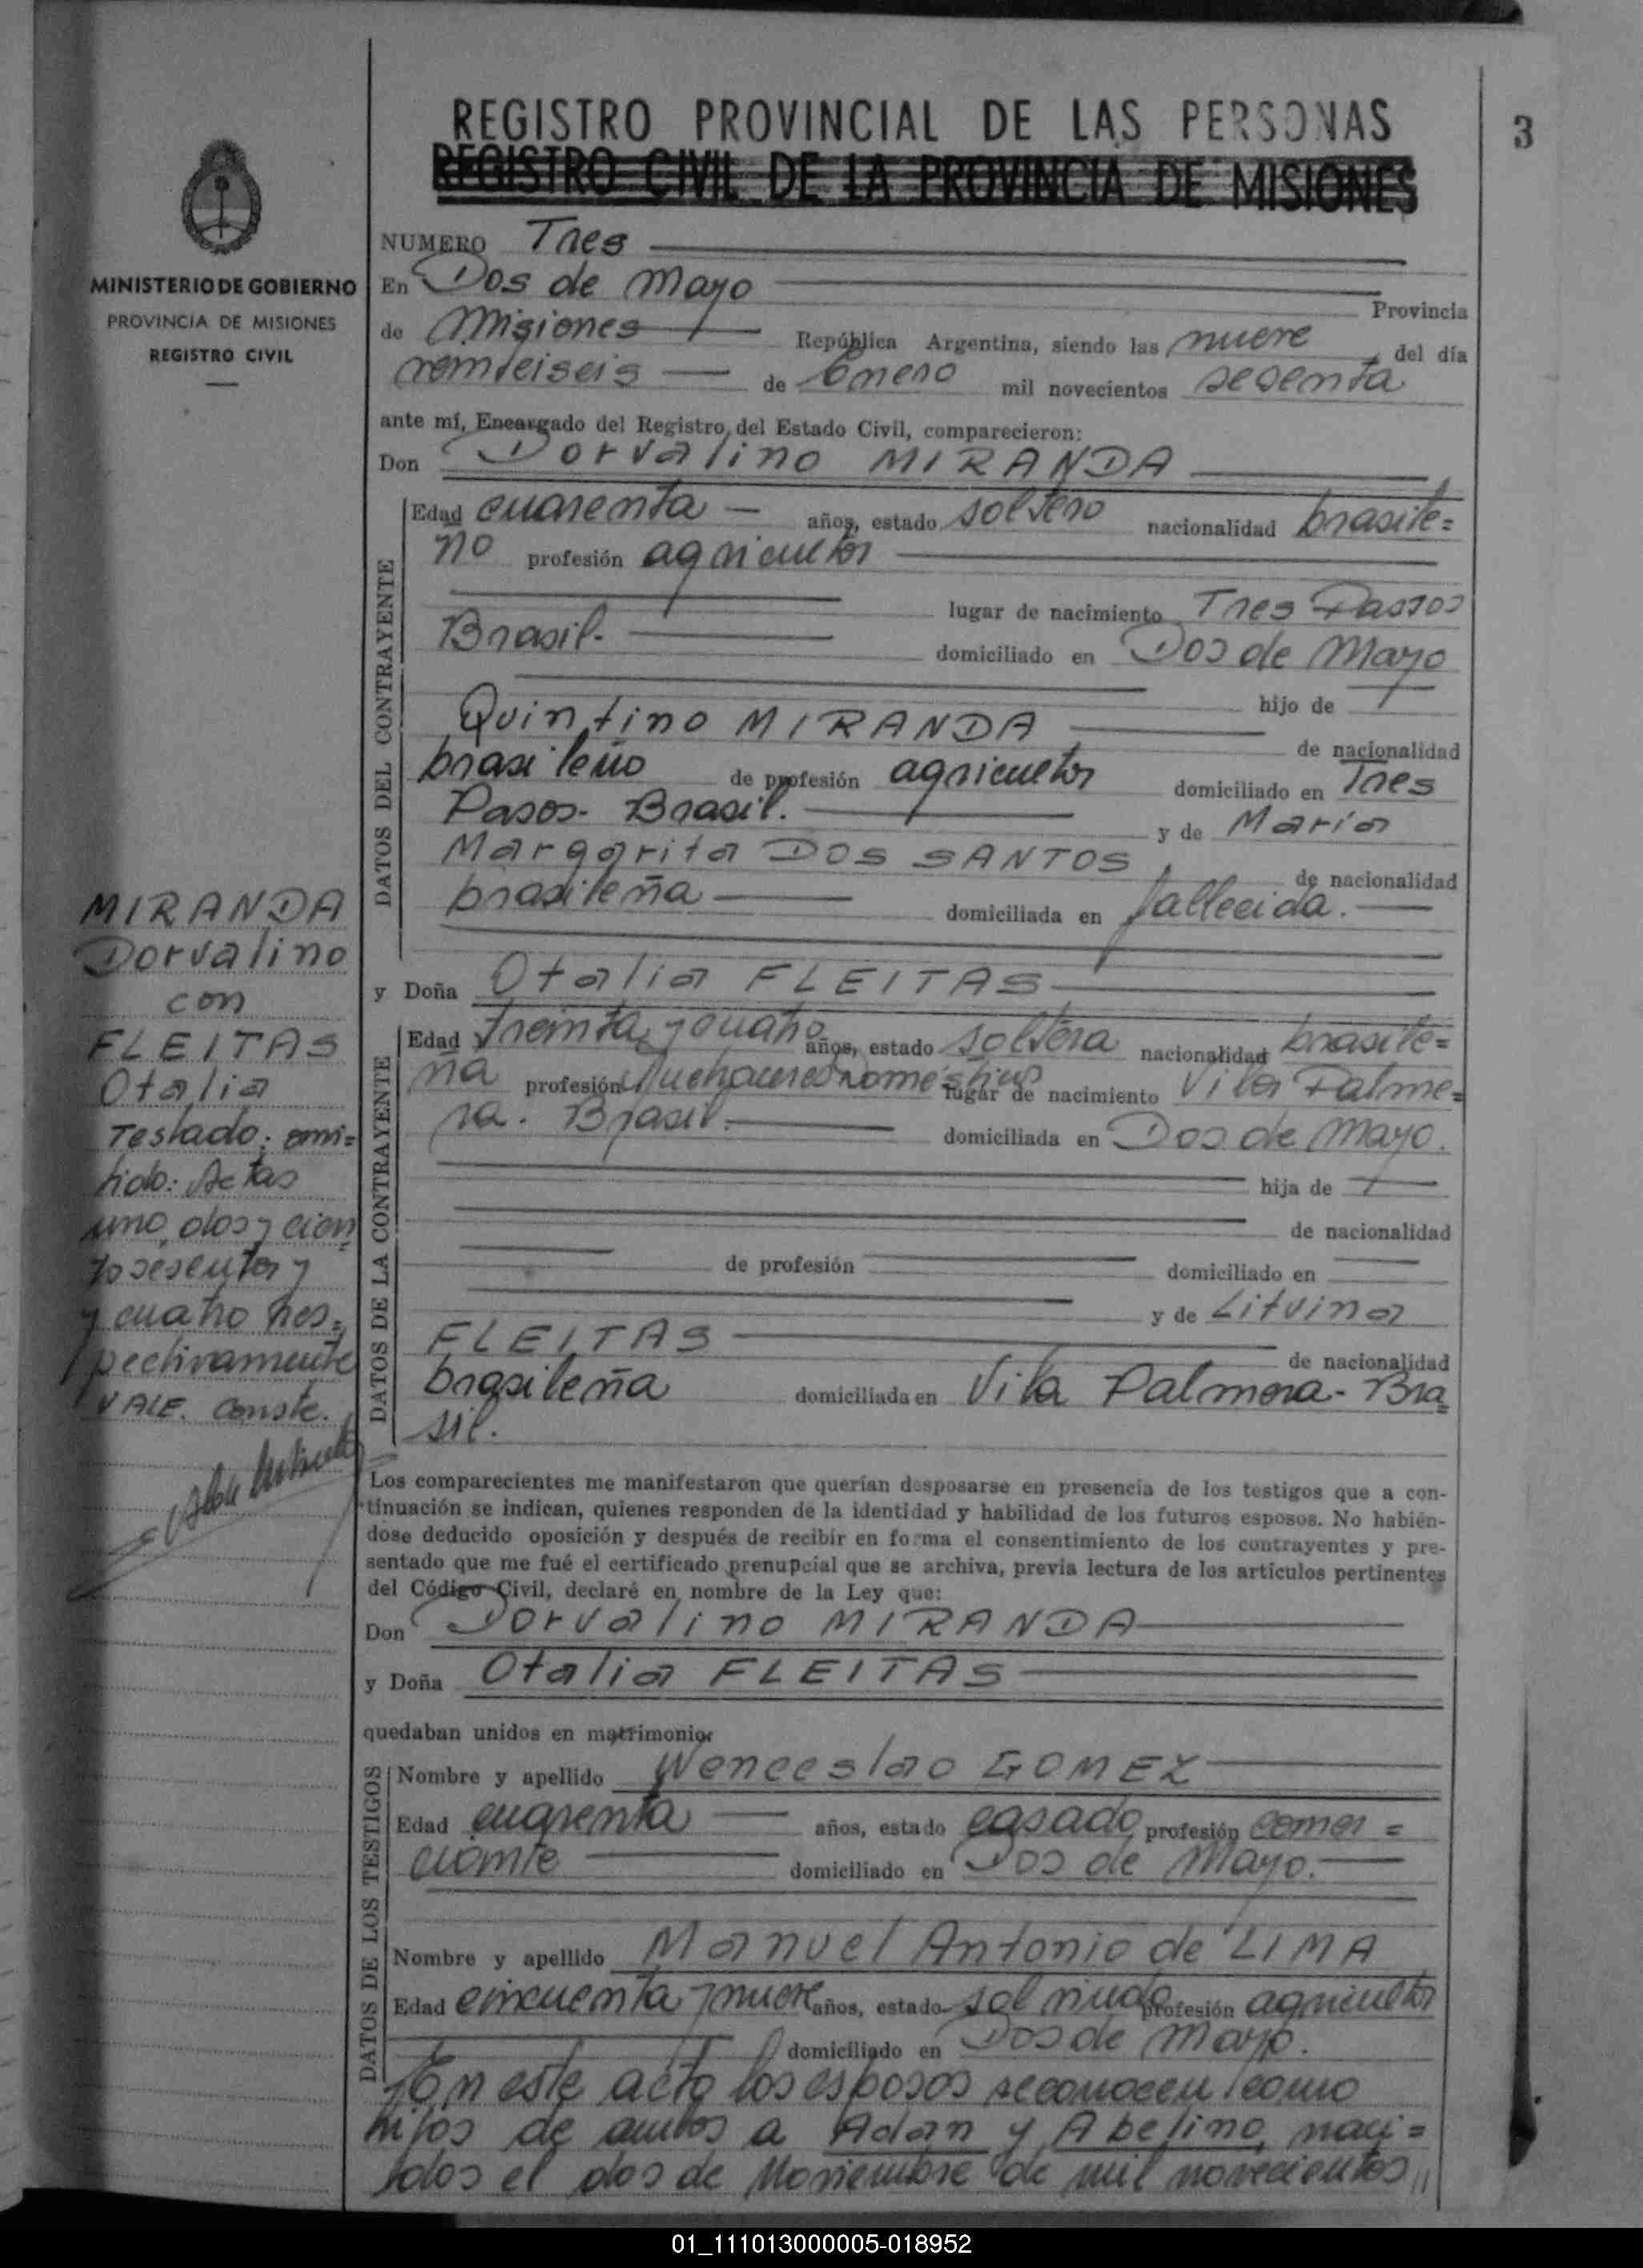 REGISTRO PROVINCIAL DE LAS PERSONAS
REGISTRO CIVIL DE LA PROVINCIA DE MISIONES
3
MINISTERIO DE GOBIERNO
PROVINCIA DE MISIONES
REGISTRO CIVIL
NUMERO Tres
En Dos de Mayo Provincia
de Misiones República Argentina, siendo las nueve del día
veintiseis de Enero mil novecientos sesenta
ante mí, Encargado del Registro del Estado Civil, comparecieron:
Don Dorvalino MIRANDA
DATOS DEL CONTRAYENTE
Edad cuarenta años, estado soltero nacionalidad brasile=
no profesión agricultor
lugar de nacimiento Tres Passos
Brasil. domiciliado en Dos de Mayo
hijo de
Quintino MIRANDA de nacionalidad
brasileño de profesión agricultor domiciliado en Tres
Pasos- Brasil. y de Maria
Margarita DOS SANTOS de nacionalidad
brasileña domiciliada en fallecida.
y Doña Otalia FLEITAS
DATOS DE LA CONTRAYENTE
Edad treinta y cuatro años, estado soltera nacionalidad brasile=
ña profesión lugar de nacimiento Vila Palme=
ra. Brasil. domiciliada en Dos de Mayo.
hija de
de nacionalidad
de profesión domiciliado en
y de Litvina
FLEITAS de nacionalidad
brasileña domiciliada en Vila Palmera- Bra
sil.
MIRANDA
Dorvalino
con
FLEITAS
Otalia
Testado: omi=
tido: Actas
uno, dos y cien
to sesenta y
y cuatro res=
pectivamente
VALE. Conste.
Los comparecientes me manifestaron que querían desposarse en presencia de los testigos que a con-
tinuación se indican, quienes responden de la identidad y habilidad de los futuros esposos. No habién-
dose deducido oposición y después de recibir en forma el consentimiento de los contrayentes y pre-
sentado que me fué el certificado prenupcial que se archiva, previa lectura de los artículos pertinentes
del Código Civil, declaré en nombre de la Ley que:
Don Dorvalino MIRANDA
y Doña Otalia FLEITAS
quedaban unidos en matrimonio
DATOS DE LOS TESTIGOS
Nombre y apellido Wenceslao GOMEZ
Edad cuarenta años, estado casado profesión comer=
ciante domiciliado en Dos de Mayo.
Nombre y apellido Manuel Antonio de LIMA
Edad cincuenta y nueve años, estado viudo profesión agricultor
domiciliado en Dos de Mayo.
En este acto los esposos reconocen como
hijos de ambos a Adan y Abelino, naci=
dos el dos de Noviembre de mil novecientos
01_111013000005-018952